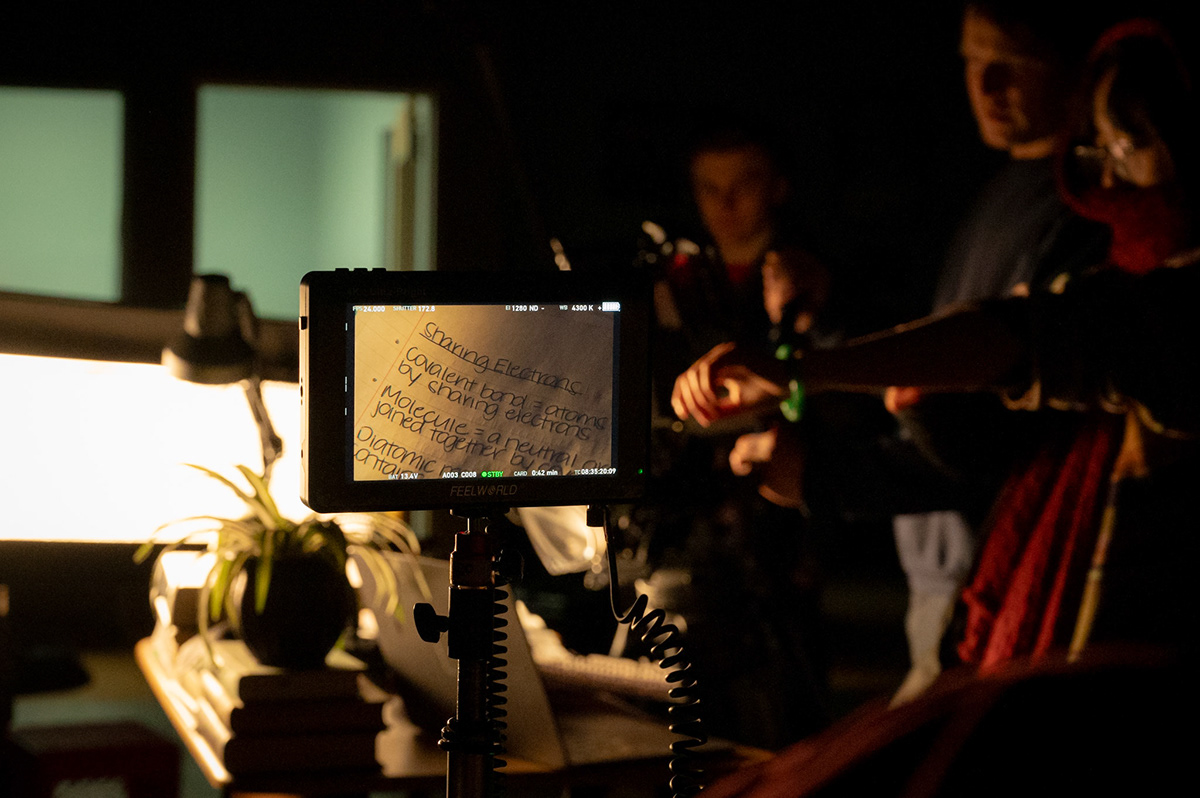 FPS 24.000 SHUTTER 172.8 EI 1280 ND - WB 4300 K
Sharing Electrons
Covalent bond = atoms
by sharing electrons
Molecule = a neutral
joined together by
Diatomic
contain
BAT 13.4V A003 C008 STBY CARD 0:42 min TC 08:35:20:09
FEELWORLD